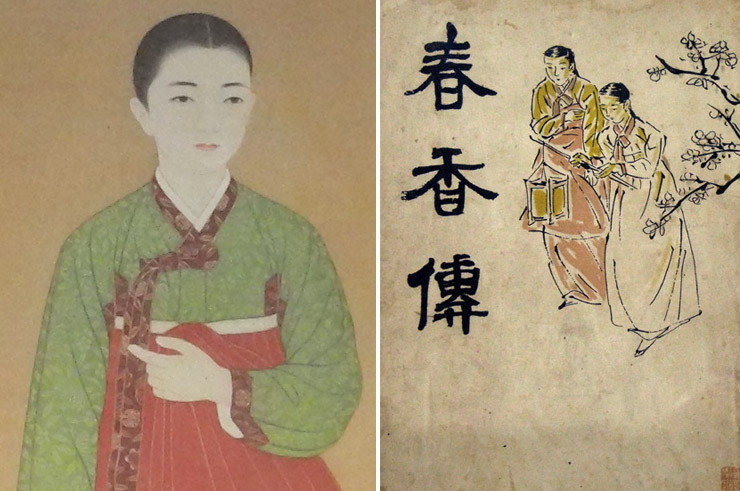 春
香
傳